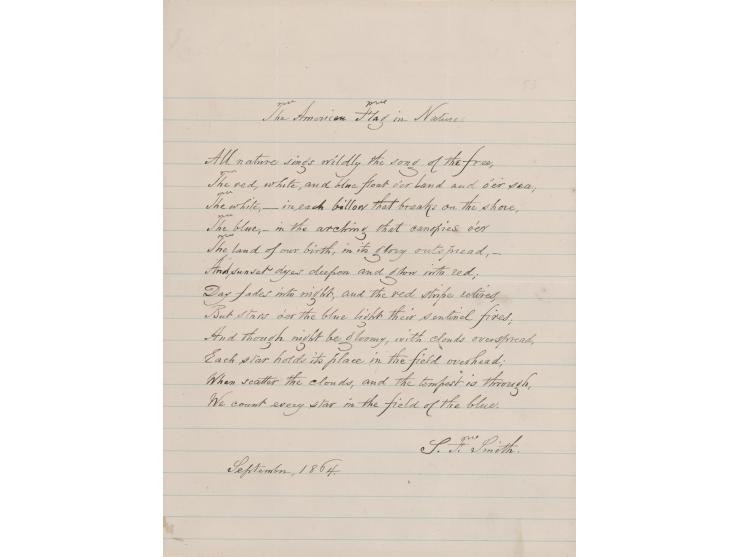 The American Flag in Nature.
All nature sings wildly the song of the free,
The red, white, and blue float o'er land and o'er sea;
The white,—in each billow that breaks on the shore,
The blue,—in the arching that canopies o'er
The land of our birth, in its glory outspread,—
And sunset dyes deepen and glow into red;
Day fades into night, and the red stripe retires,
But stars o'er the blue light their sentinel fires;
And though night be gloomy, with clouds overspread,
Each star holds its place in the field overhead;
When scatter the clouds, and the tempest is through,
We count every star in the field of the blue.
S. F. Smith.
September, 1864.